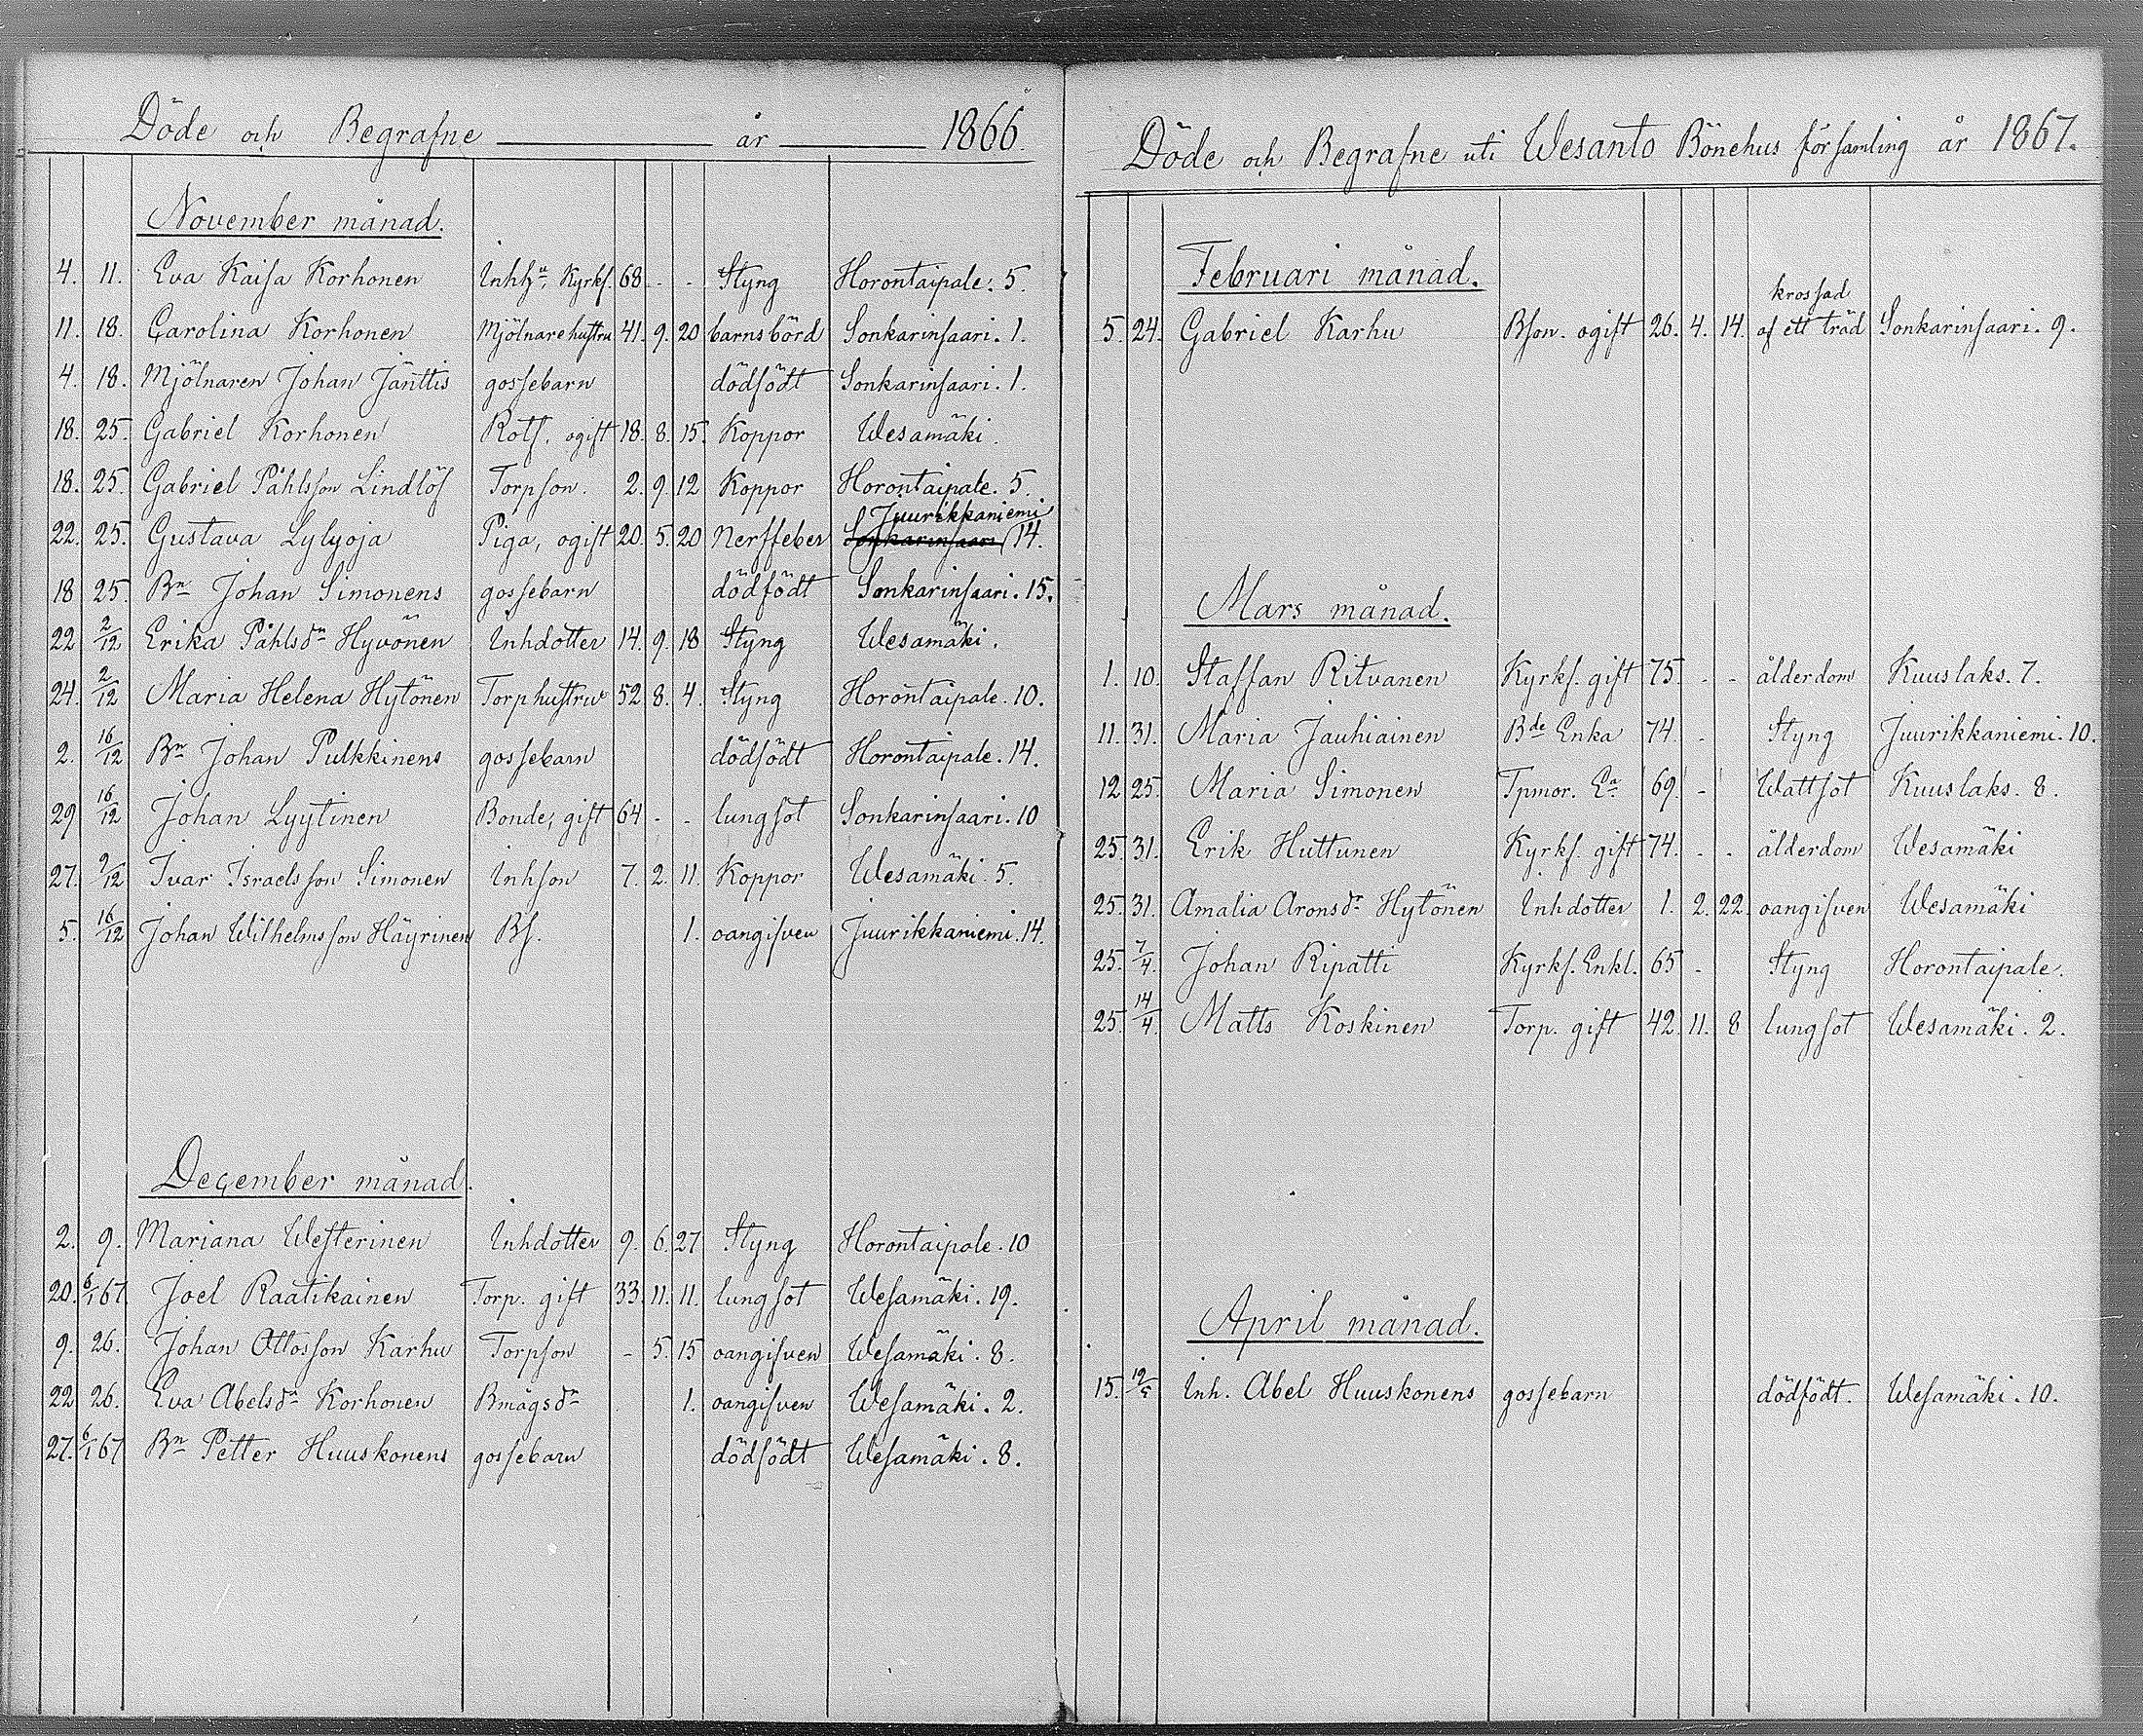 Döde och Begrafne år 1866.
November månad.
4. 11. Eva Kaisa Korhonen Inhhu. Kyrkf. 68 - - Styng Horontaipale. 5.
11. 18. Carolina Korhonen Mjölnarehustru 41. 9. 20 barnsbörd Sonkarinsaari. 1.
4. 18. Mjölnaren Johan Jänttis gossebarn dödfödt Sonkarinsaari. 1.
18. 25. Gabriel Korhonen Rotf. ogift 18. 8. 15. Koppor Wesamäki.
18. 25. Gabriel Påhlsson Lindlöf Torpson. 2. 9. 12 Koppor Horontaipale. 5.
Juurikkaniemi
22. 25. Gustava Lylyoja Piga, ogift 20. 5. 20 Nerffeber Sonkarinsaari 14.
18 25. Bn Johan Simonens gossebarn dödfödt Sonkarinsaari. 15.
22 2/12 Erika Påhlsdr Hyvönen Inhdotter 14. 9. 18 Styng Wesamäki.
24. 2/12 Maria Helena Hytönen Torphustru 52 8. 4. Styng Horontaipale. 10.
2. 16/12 Bn Johan Pulkkinens gossebarn dödfödt Horontaipale. 14.
29 16/12 Johan Lyytinen Bonde, gift 64 - - lungsot Sonkarinsaari. 10
27. 9/12 Ivar Israelsson Simonen Inhson 7. 2. 11. Koppor Wesamäki. 5.
5. 16/12 Johan Wilhelmsson Häyrinen Bs. 1. oangifven Juurikkaniemi. 14.
December månad.
2. 9. Mariana Westerinen Inhdotter 9. 6. 27 Styng Horontaipale. 10
20. 6/1 67. Joel Raatikainen Torp. gift 33. 11. 11. lungsot Wesamäki. 19.
9. 26. Johan Ottosson Karhu Torpson - 5. 15 oangifven Wesamäki. 8.
22 26. Eva Abelsdr Korhonen Bmågsdr 1. oangifven Wesamäki. 2.
27. 6/1 67 Bn Petter Huuskonens gossebarn dödfödt Wesamäki. 8.
Döde och Begrafne uti Wesanto Bönehus församling år 1867.
Februari månad.
krossad
5. 24. Gabriel Karhu Bson. ogift 26. 4. 14. af ett träd Sonkarinsaari. 9.
Mars månad.
1. 10. Staffan Ritvanen Kyrkf. gift 75. - - ålderdom Kuuslaks. 7.
11. 31. Maria Jauhiainen Bde Enka 74. - Styng Juurikkaniemi. 10.
12 25. Maria Simonen Tpmor. Ea. 69. - Wattsot Kuuslaks. 8.
25. 31. Erik Huttunen Kyrkf. gift 74. - - ålderdom Wesamäki
25. 31. Amalia Aronsdr Hytönen Inhdotter 1. 2. 22. oangifven Wesamäki
25. 7/4. Johan Ripatti Kyrkf. Enkl. 65 - Styng Horontaipale.
25. 14/4. Matts Koskinen Torp. gift 42. 11. 8 lungsot Wesamäki. 2.
April månad.
15. 12/5 Inh. Abel Huuskonens gossebarn dödfödt. Wesamäki. 10.